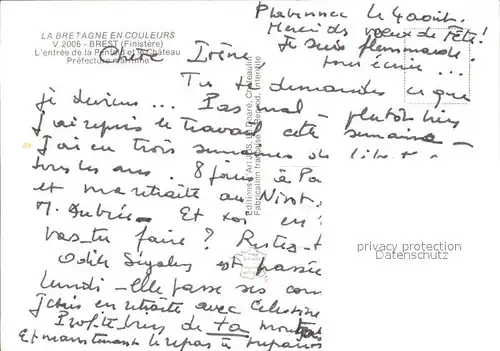 LA BRETAGNE EN COULEURS
V. 2006 - BREST (Finistère)
L'entrée de la Penfeld et le Château
Préfecture maritime
Plabennec le 4 août.
Merci des voeux de Fête!
Je suis flemmarde.
Irène,
Tu te demandes ce que
je deviens ... Pas mal - plutôt bien
J'ai repris le travail cette semaine -
J'ai eu trois semaines de
tous les ans. 8 jours à Pa
et ma retraite au
M. Aubrée - Et toi en
vas-tu faire ? Restes-t
Odile est passée
lundi - elle passe ses con
J'étais en retraite avec Célestine
Profite bien de ta
Et maintenant le repas à préparer
Editions d'Art JOS, Le Doaré, Châteaulin
Fabrication française - Reprod. interdite
privacy protection
Datenschutz